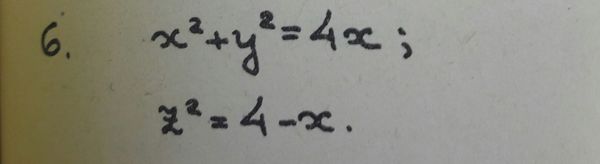 6. x² + y² = 4x ;
z² = 4 - x.